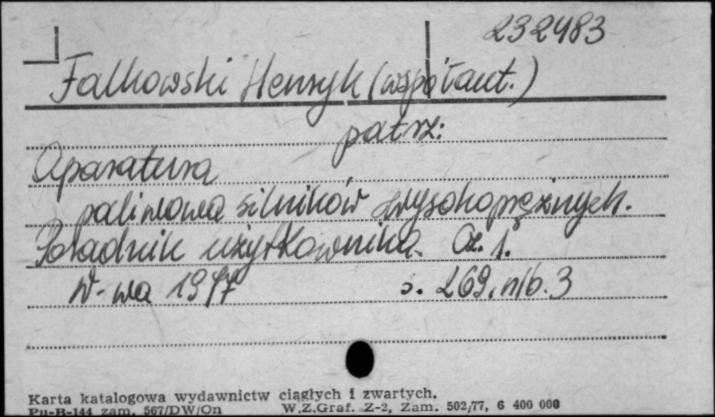 232483
Falkowski Henryk (współaut.)
patrz:
Aparatura
paliwowa silników wysokoprężnych.
Poradnik użytkownika. Cz. 1.
W-wa 1977 s. 269, nlb. 3
Karta katalogowa wydawnictw ciągłych i zwartych.
Pu-B-144 zam. 567/DW/On W.Z.Graf. Z-2, Zam. 502/77, 6 400 000